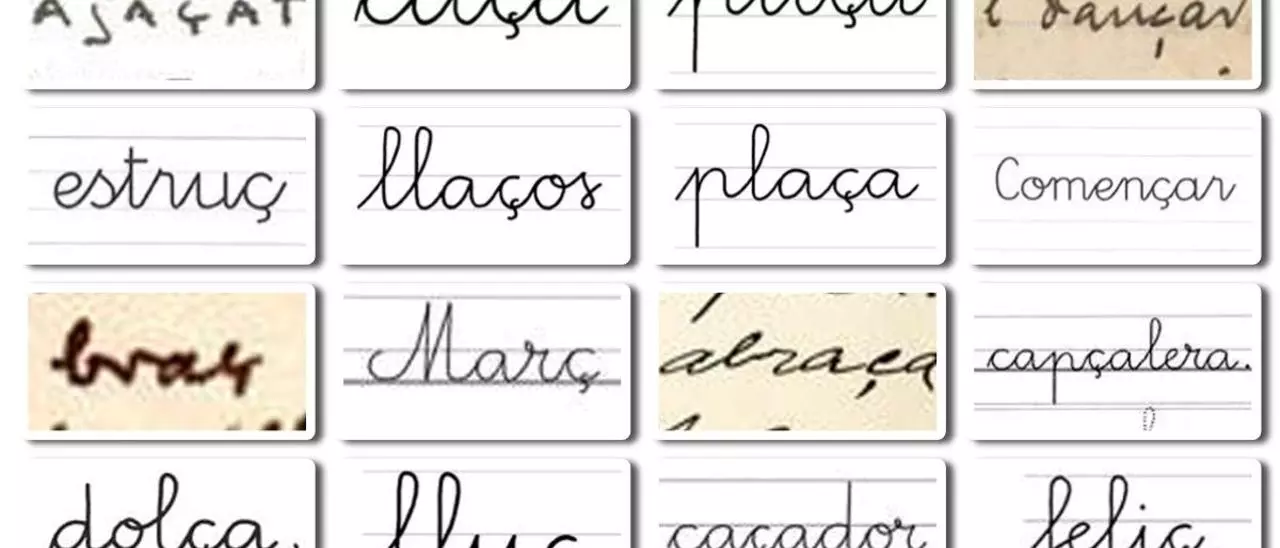 plaça
i dançar
estruç
llaços
plaça
Començar
braç
Març
abraça
capçalera.
dolça.
lluç
caçador
feliç